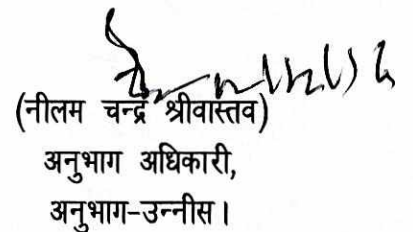 (नीलम चन्द्र श्रीवास्तव)
अनुभाग अधिकारी,
अनुभाग-उन्नीस।